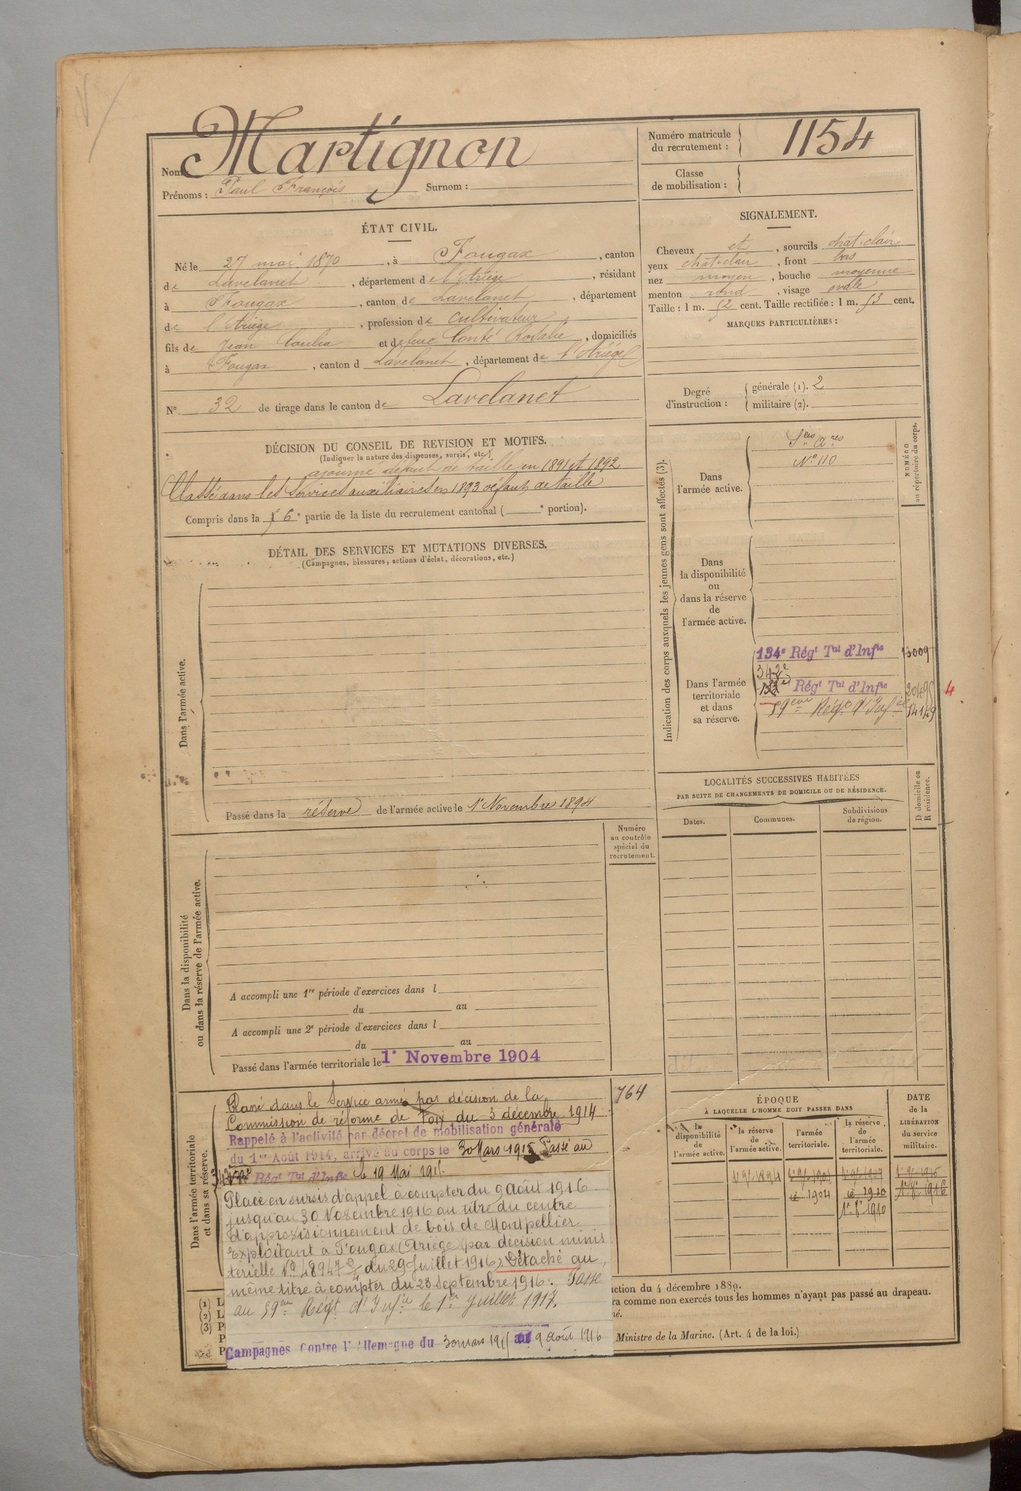 Nom Martignon
Prénoms : Paul François Surnom :
Numéro matricule
du recrutement : 1154
Classe
de mobilisation :
ÉTAT CIVIL.
Né le 27 mai 1870, à Fougax, canton
de Lavelanet, département de l'Ariège, résidant
à Fougax, canton de Lavelanet, département
de l'Ariège, profession de cultivateur,
fils de Jean et de feue Conté Rosalie, domiciliés
à Fougax, canton d Lavelanet, département de l'Ariège
N° 32 de tirage dans le canton de Lavelanet
SIGNALEMENT.
Cheveux et, sourcils chat-clair
yeux chat-clair, front bas
nez moyen, bouche moyenne
menton rond, visage ovale
Taille : 1 m. 52 cent. Taille rectifiée : 1 m. 53 cent.
MARQUES PARTICULIÈRES :
Degré
d'instruction :
générale (1). 2
militaire (2).
DÉCISION DU CONSEIL DE REVISION ET MOTIFS.
(Indiquer la nature des dispenses, sursis, etc.)
ajourné défaut de taille en 1891 et 1892
Classé dans les services auxiliaires en 1893 défaut de taille
Compris dans la 6e partie de la liste du recrutement cantonal ( e portion).
DÉTAIL DES SERVICES ET MUTATIONS DIVERSES.
(Campagnes, blessures, actions d'éclat, décorations, etc.)
Dans l'armée active.
Passé dans la réserve de l'armée active le 1er Novembre 1894
Indication des corps auxquels les jeunes gens sont affectés (3).
NUMÉRO
au répertoire du corps.
Dans
l'armée active.
Sces Ares
N° 110
Dans
la disponibilité
ou
dans la réserve
de
l'armée active.
Dans l'armée
territoriale
et dans
sa réserve.
134e Régt Tal d'Infie
342e
Régt Tal d'Infie
59eme Régt d'Infie 14149
4
LOCALITÉS SUCCESSIVES HABITÉES
PAR SUITE DE CHANGEMENTS DE DOMICILE OU DE RÉSIDENCE.
Dates.
Communes.
Subdivisions
de région.
D domicile ou
R résidence.
Numéro
au contrôle
spécial du
recrutement.
Dans la disponibilité
ou dans la réserve de l'armée active.
A accompli une 1re période d'exercices dans l
du au
A accompli une 2e période d'exercices dans l
du au
Passé dans l'armée territoriale le 1er Novembre 1904
764
Dans l'armée territoriale
et dans sa réserve.
Classé dans le Service armé par décision de la
Commission de réforme de Foix du 3 décembre 1914
Rappelé à l'activité par décret de mobilisation générale
du 1er Août 1914, arrivé au corps le 30 Mars 1915 Passé au
Régt Tal d'Infie le 19 Mai 191
Placé en sursis d'appel à compter du 9 Août 1916
jusqu'au 30 Novembre 1916 au titre du centre
d'approvisionnement de bois de Montpellier
Exploitant à Fougax (Ariège) par décision minis
térielle N° 48947 du 29 Juillet 1916. Détaché au
même titre à compter du 28 Septembre 1916. Passé
au 59eme Régt d'Infie le 1er Juillet 1917.
Campagnes Contre l'Allemagne du 30 mars 1915 au 9 août 1916
ÉPOQUE
À LAQUELLE L'HOMME DOIT PASSER DANS
la
disponibilité
de
l'armée active.
la réserve
de
l'armée active.
l'armée
territoriale.
la réserve
de
l'armée
territoriale.
DATE
de la
LIBÉRATION
du service
militaire.
1904
1910
1916
(1) L
(2) L
(3) P
ction du 4 décembre 1889.
ra comme non exercés tous les hommes n'ayant pas passé au drapeau.
né.
Ministre de la Marine. (Art. 4 de la loi.)